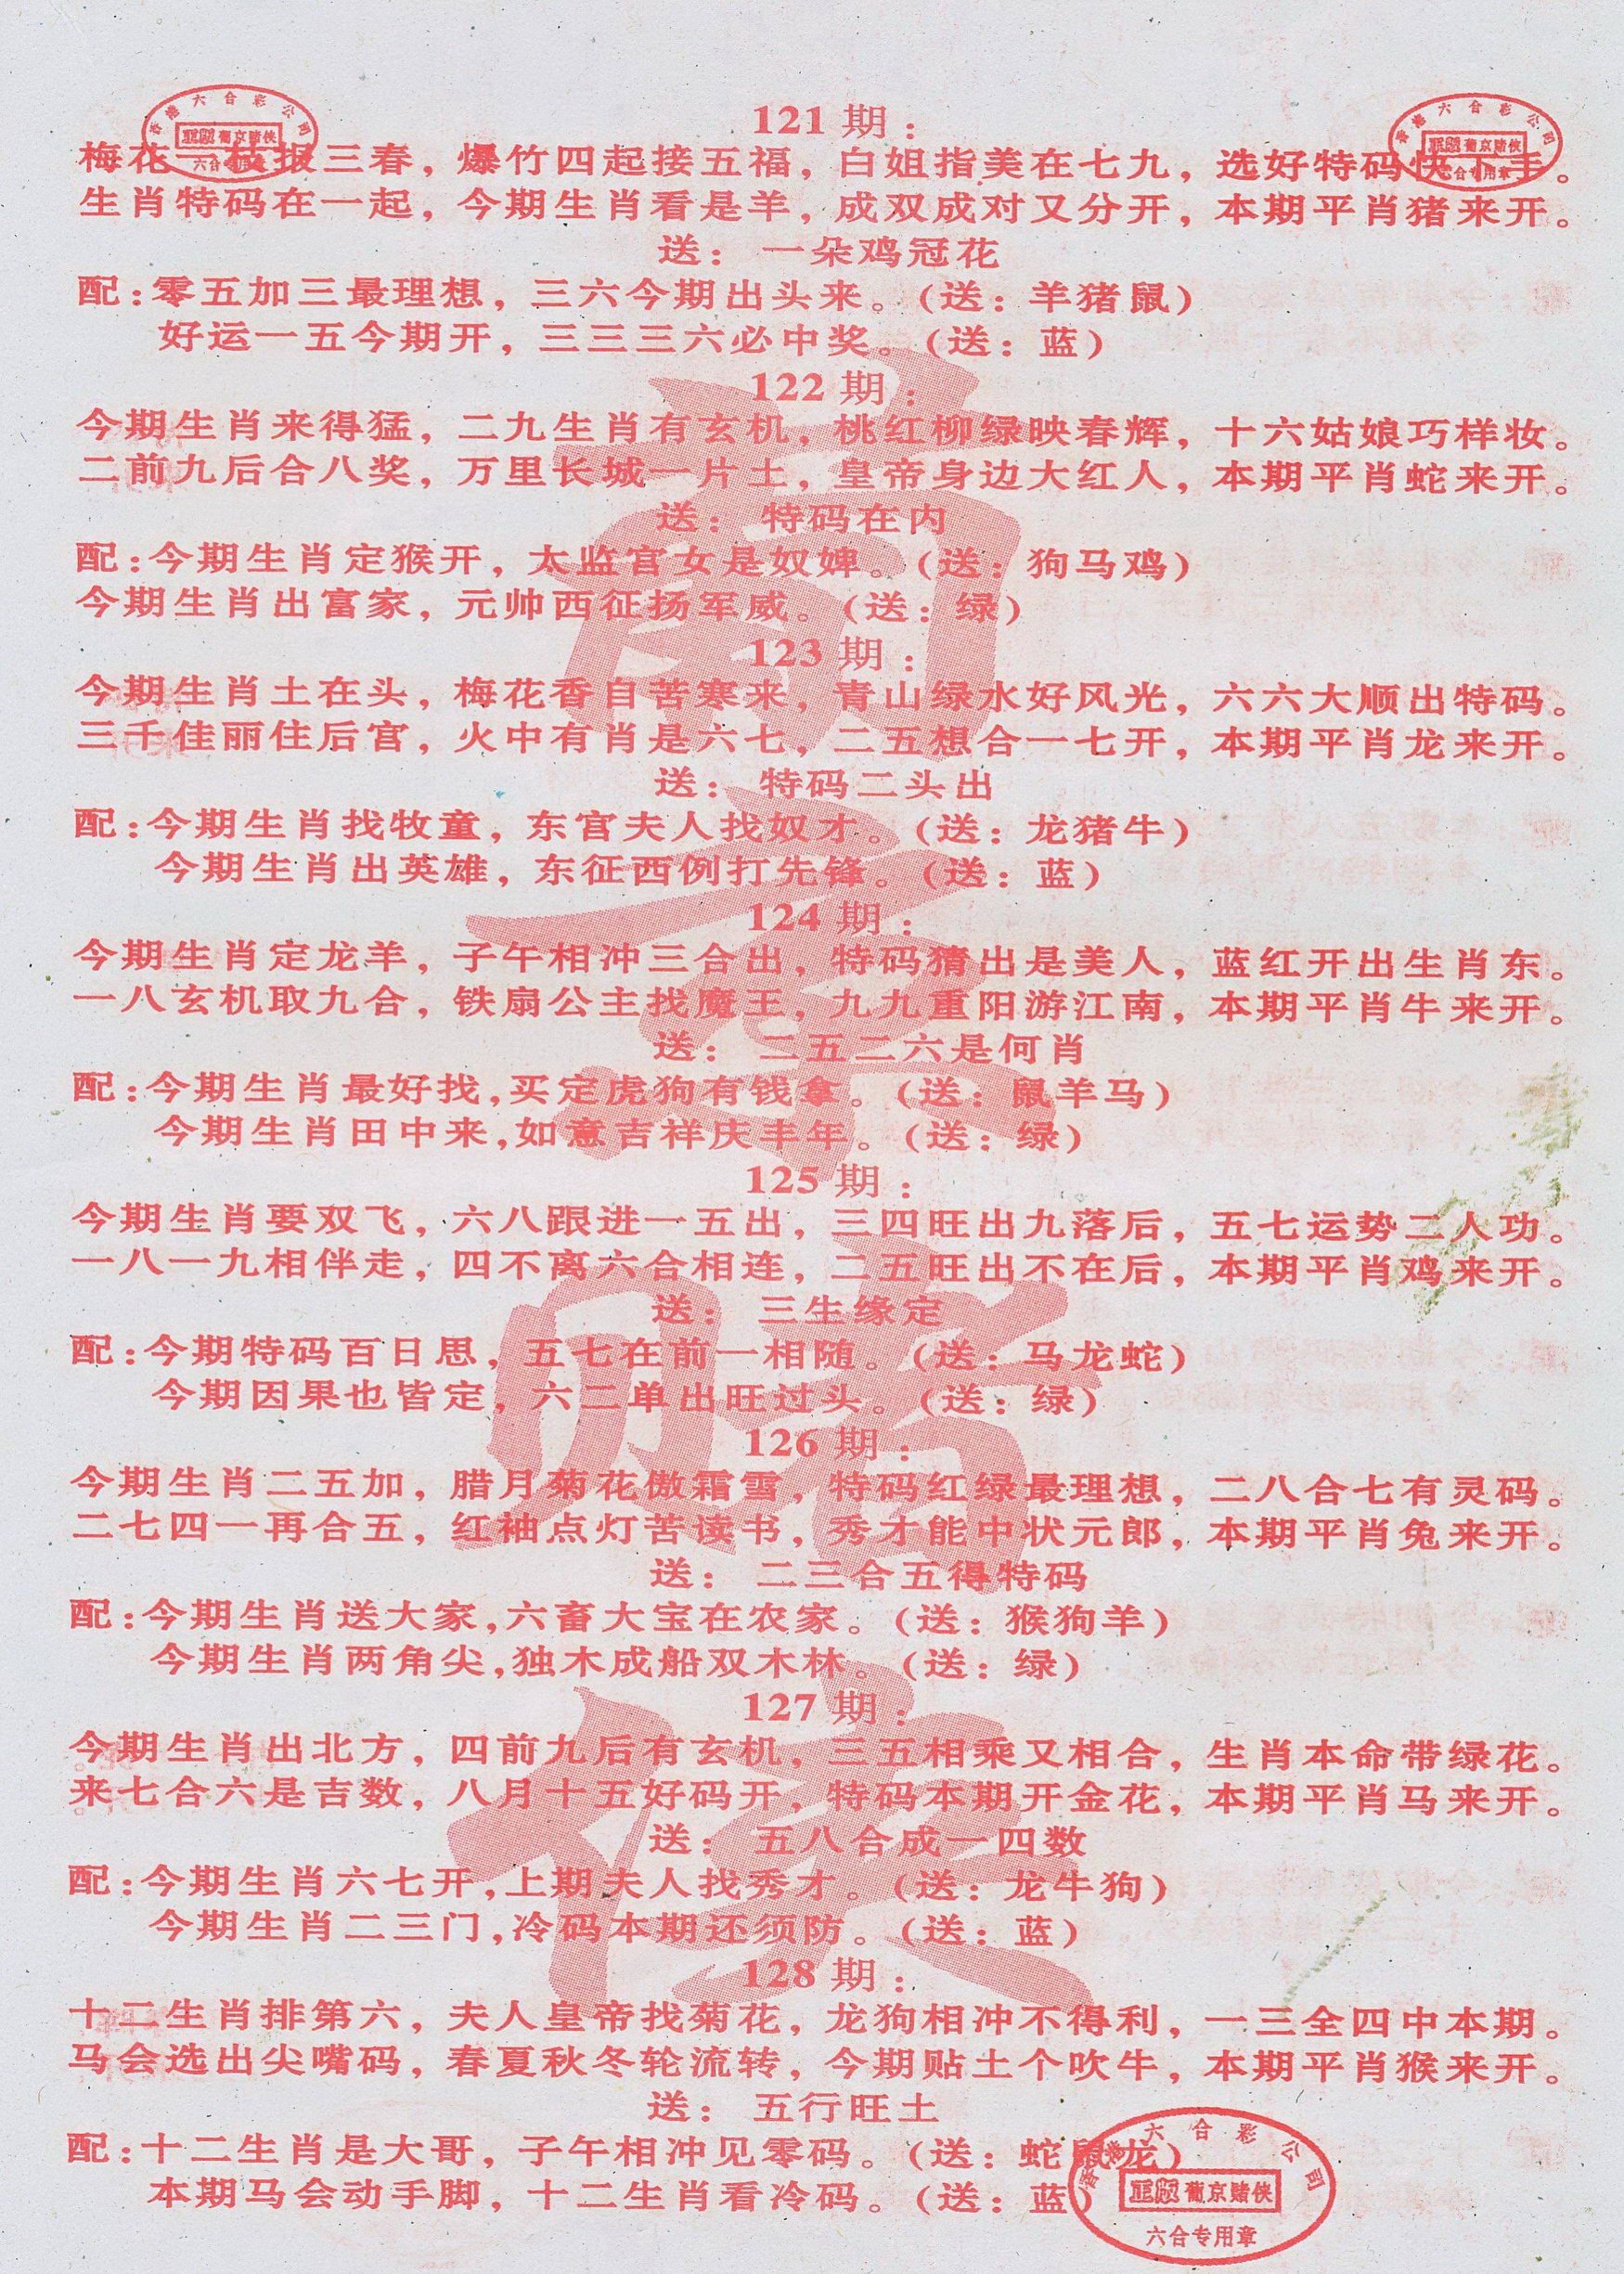 121 期：
梅花一枝报三春，爆竹四起接五福，白姐指美在七九，选好特码快下手。
生肖特码在一起，今期生肖看是羊，成双成对又分开，本期平肖猪来开。
送： 一朵鸡冠花
配：零五加三最理想，三六今期出头来。（送：羊猪鼠）
好运一五今期开，三三三六必中奖。（送：蓝）
122 期：
今期生肖来得猛，二九生肖有玄机，桃红柳绿映春辉，十六姑娘巧样妆。
二前九后合八奖，万里长城一片土，皇帝身边大红人，本期平肖蛇来开。
送： 特码在内
配：今期生肖定猴开，太监宫女是奴婢。（送：狗马鸡）
今期生肖出富家，元帅西征扬军威。（送：绿）
123 期：
今期生肖土在头，梅花香自苦寒来，青山绿水好风光，六六大顺出特码。
三千佳丽住后宫，火中有肖是六七，二五想合一七开，本期平肖龙来开。
送： 特码二头出
配：今期生肖找牧童，东宫夫人找奴才。（送：龙猪牛）
今期生肖出英雄，东征西例打先锋。（送：蓝）
124 期：
今期生肖定龙羊，子午相冲三合出，特码猜出是美人，蓝红开出生肖东。
一八玄机取九合，铁扇公主找魔王，九九重阳游江南，本期平肖牛来开。
送： 二五二六是何肖
配：今期生肖最好找，买定虎狗有钱拿。（送：鼠羊马）
今期生肖田中来，如意吉祥庆丰年。（送：绿）
125 期：
今期生肖要双飞，六八跟进一五出，三四旺出九落后，五七运势二人功。
一八一九相伴走，四不离六合相连，二五旺出不在后，本期平肖鸡来开。
送： 三生缘定
配：今期特码百日思，五七在前一相随。（送：马龙蛇）
今期因果也皆定，六二单出旺过头。（送：绿）
126 期：
今期生肖二五加，腊月菊花傲霜雪，特码红绿最理想，二八合七有灵码。
二七四一再合五，红袖点灯苦读书，秀才能中状元郎，本期平肖兔来开。
送： 二三合五得特码
配：今期生肖送大家，六畜大宝在农家。（送：猴狗羊）
今期生肖两角尖，独木成船双木林。（送：绿）
127 期：
今期生肖出北方，四前九后有玄机，三五相乘又相合，生肖本命带绿花。
来七合六是吉数，八月十五好码开，特码本期开金花，本期平肖马来开。
送： 五八合成一四数
配：今期生肖六七开，上期夫人找秀才。（送：龙牛狗）
今期生肖二三门，冷码本期还须防。（送：蓝）
128 期：
十二生肖排第六，夫人皇帝找菊花，龙狗相冲不得利，一三全四中本期。
马会选出尖嘴码，春夏秋冬轮流转，今期贴士个吹牛，本期平肖猴来开。
送： 五行旺土
配：十二生肖是大哥，子午相冲见零码。（送：蛇鼠龙）
本期马会动手脚，十二生肖看冷码。（送：蓝）
香港六合彩公司
正版葡京赌侠
六合专用章
香港六合彩公司
正版葡京赌侠
六合专用章
香港六合彩公司
正版葡京赌侠
六合专用章
葡京赌侠